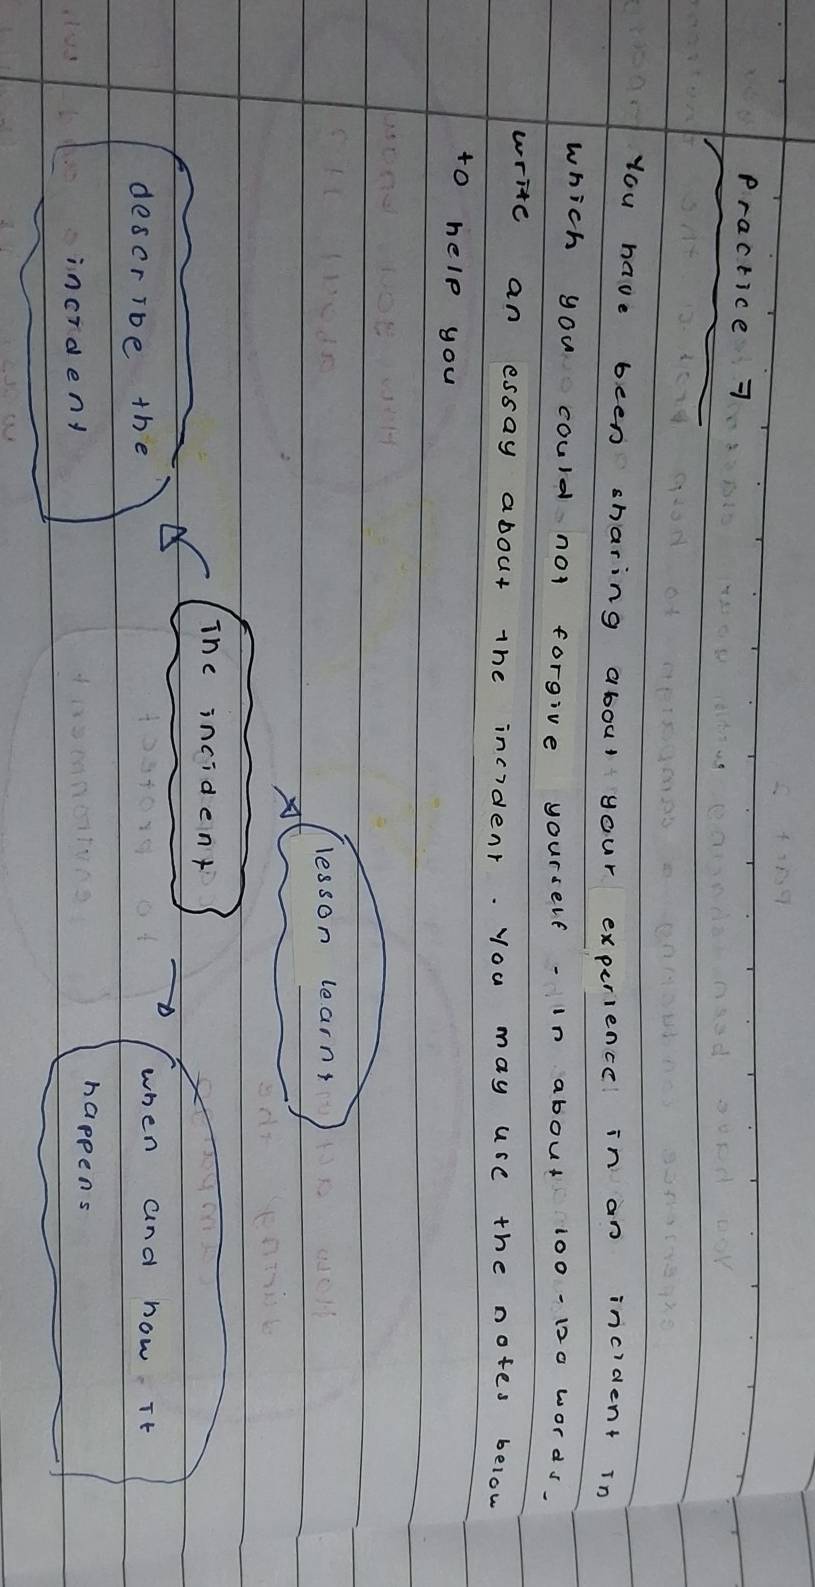 Practice 7
You have been sharing about your experience in an incident in
which you could not forgive yourself. In about 100-120 words.
write an essay about the incident. You may use the notes below
to help you
lesson learnt
The incident
describe the
incident
when and how it
happens